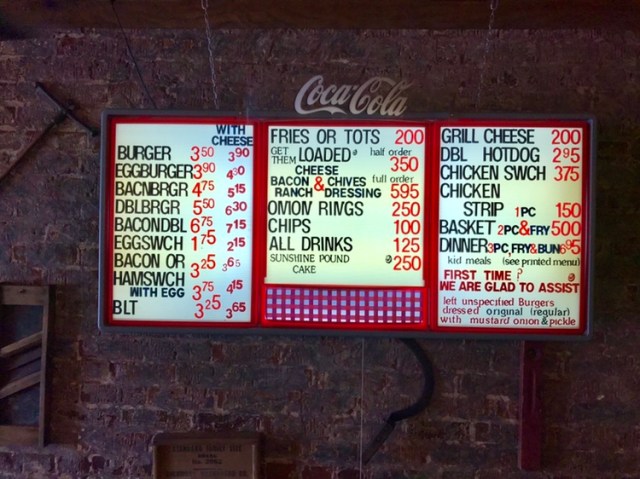 Coca-Cola
WITH
CHEESE
BURGER 3 50 3 90
EGGBURGER 3 90 4 30
BACNBRGR 4 75 5 15
DBLBRGR 5 50 6 30
BACONDBL 6 75 7 15
EGGSWCH 1 75 2 15
BACON OR 3 25 3 65
HAMSWCH
WITH EGG 3 75 4 15
BLT 3 25 3 65
FRIES OR TOTS 200
GET THEM LOADED half order
CHEESE 350
BACON & CHIVES full order
RANCH DRESSING 595
ONION RINGS 250
CHIPS 100
ALL DRINKS 125
SUNSHINE POUND
CAKE @ 250
GRILL CHEESE 200
DBL HOTDOG 295
CHICKEN SWCH 375
CHICKEN
STRIP 1PC 150
BASKET 2PC&FRY 500
DINNER 3PC,FRY&BUN 695
kid meals (see printed menu)
FIRST TIME ?
WE ARE GLAD TO ASSIST
left unspecified Burgers
dressed original (regular)
with mustard onion & pickle